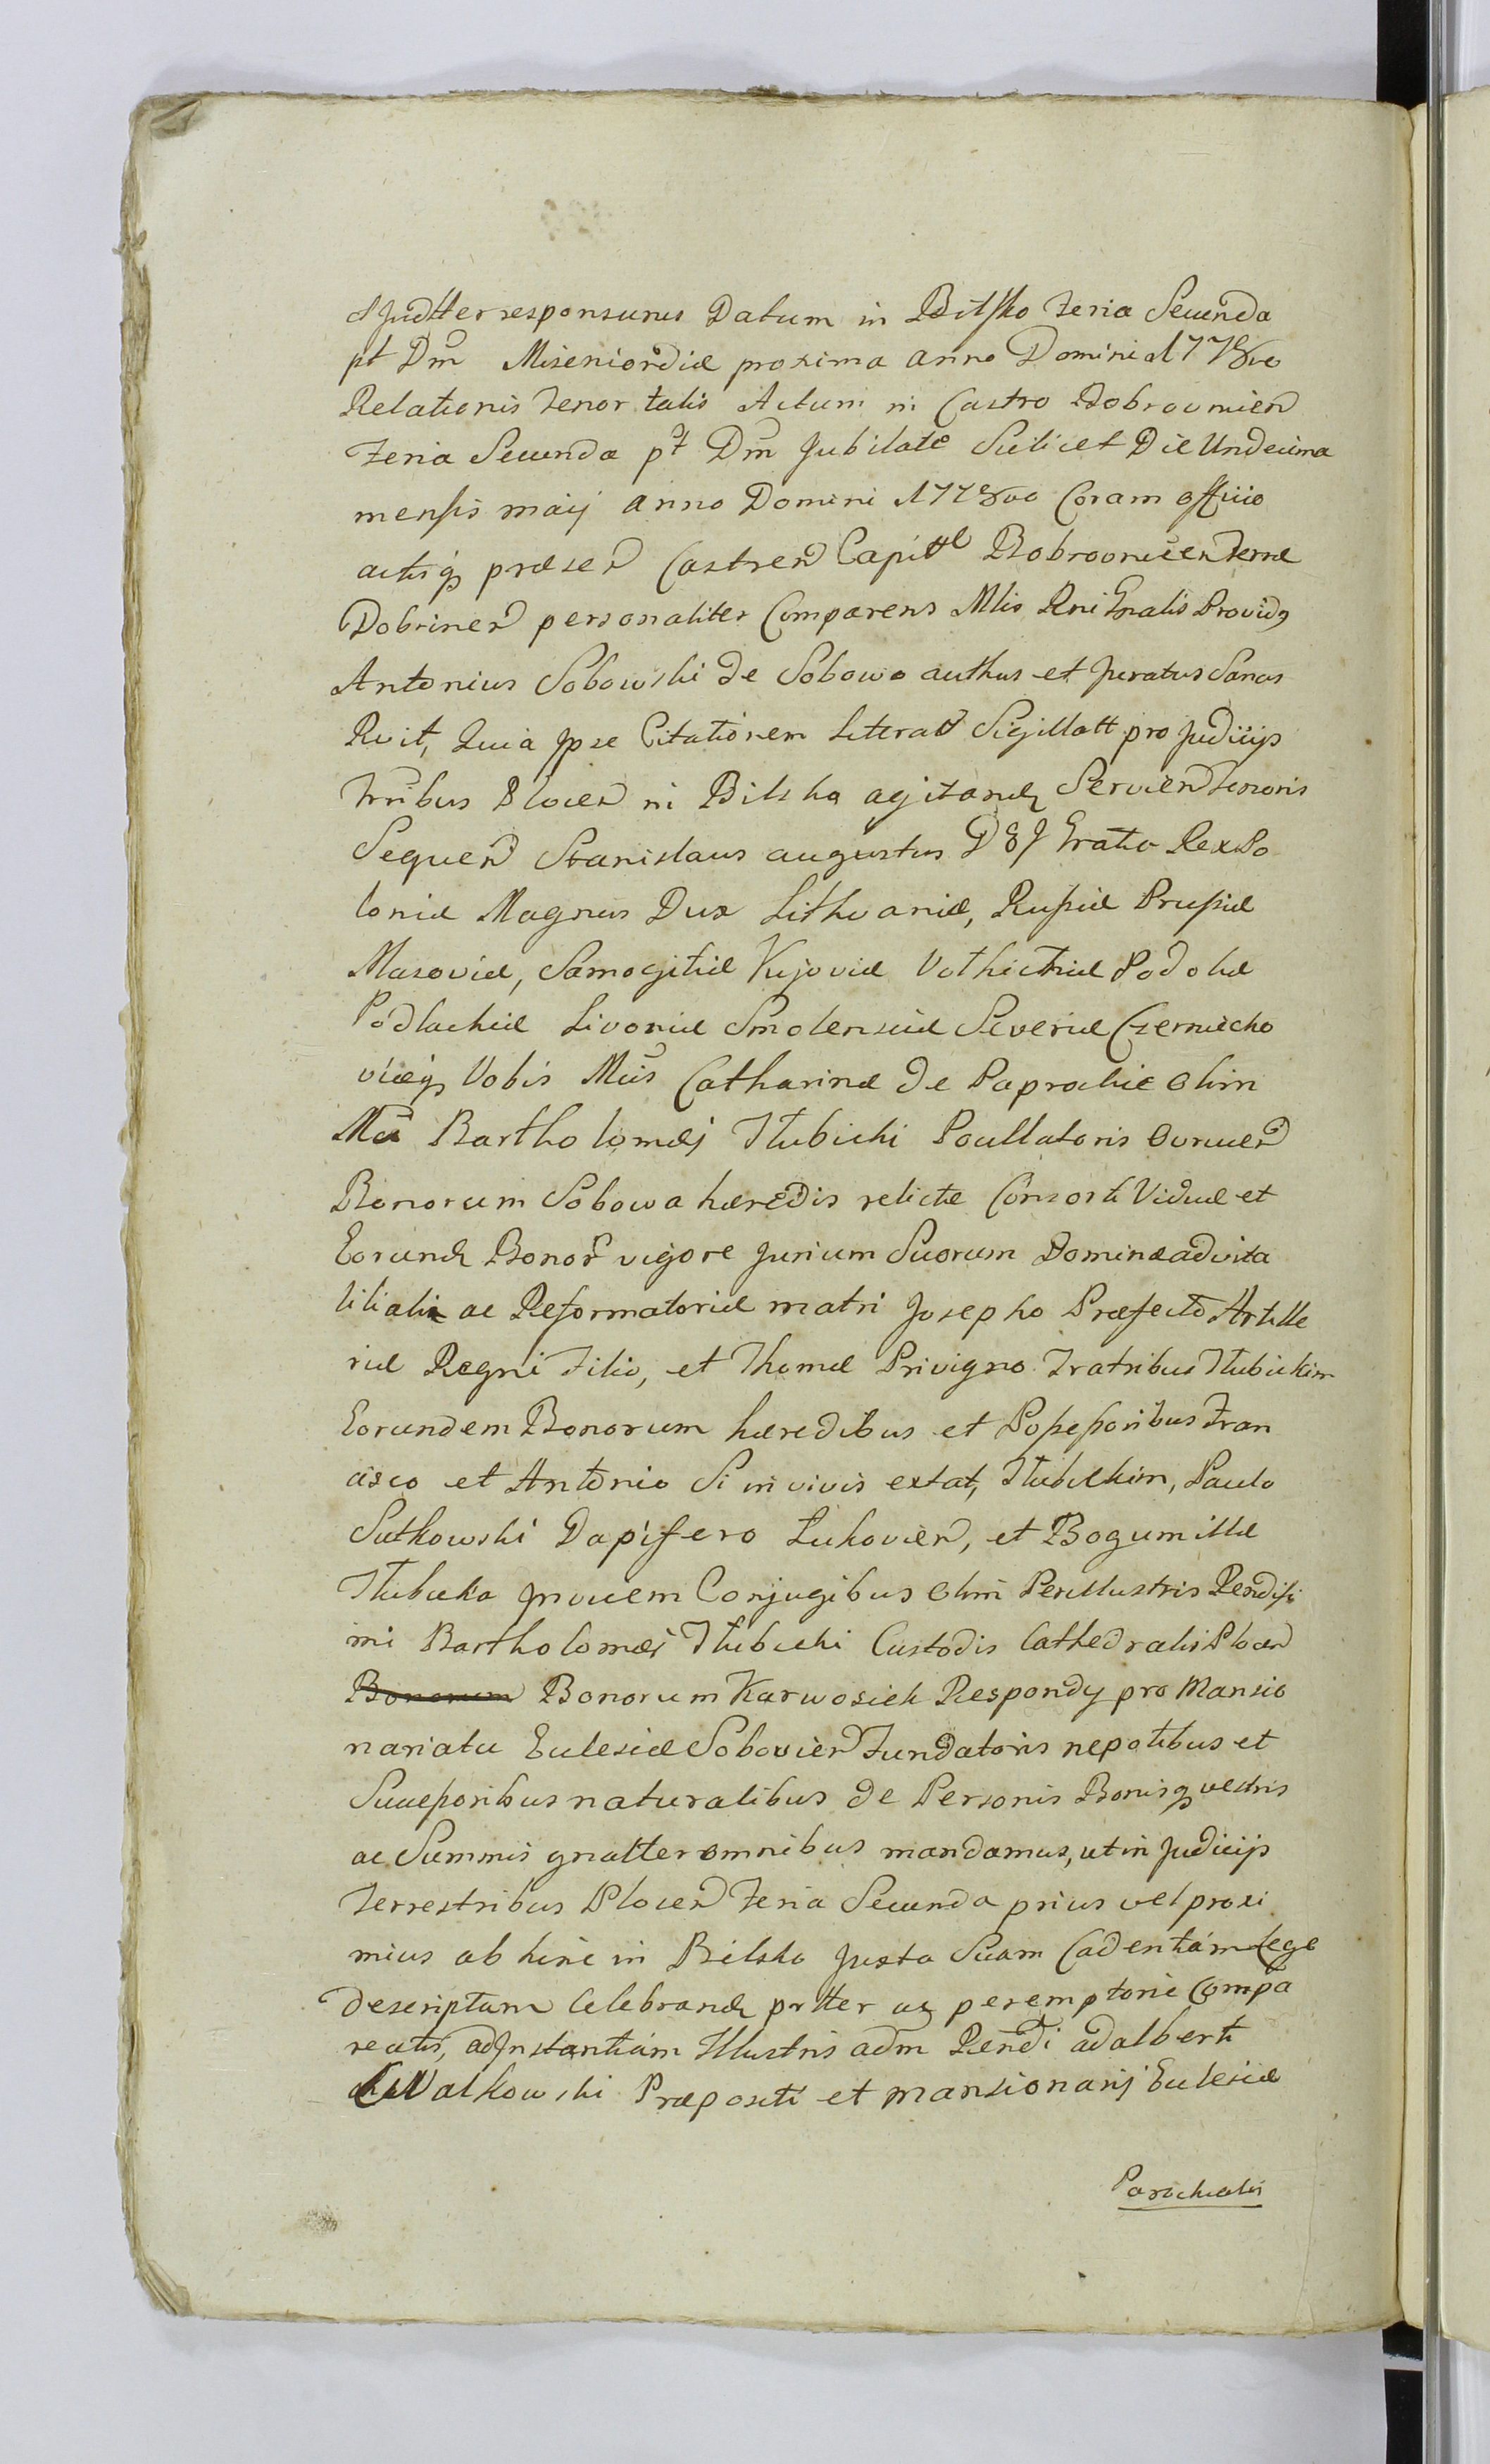 et Judtter responsurus Datum in Bilsko Feria Secunda
pt Dm Misericordiæ proxima anno Domini 177
Relationis Tenor talis Actum in Castro Bobrovnicen
Feria Secunda pt Dm Jubilate Scilicet Die Undecima
mensis maij anno Domini 177 Coram officio
actisq præsen Castren Capittl Bobrovnicen Terræ
Dobrinen personaliter Comparens Mlis Rni Gnalis Providq
Antonius Sobowski de Sobowo authus et Juratus Sanus
Rvit, Quia Jpse Citationem Literat Sigillatt pro Judicijs
Trribus Plocen in Bilsko agitand Servien Tenoris
Sequen Stanislaus augustus D G Gratia Rex Po
loniæ Magnus Dux Lithvaniæ, Russiæ Prussiæ
Masoviæ, Samogitiæ Kijoviæ Volhiciniæ Podoliæ
Podlachiæ Livoniæ Smolensciæ Severiæ Czerniecho
viæq Vobis Mcis Catharinæ de Paprockie olim
Mci Bartholomæj Hlubicki Pocillatoris Ovrucen
Bonorum Sobowa hæredis relictæ Consorti Viduæ et
Eorund Bonor vigore Jurium Suorum Dominæ advita
litiali ac Reformatoriæ matri Josepho Præfecto Artille
riæ Regni Filio, et Thomæ Privigno Fratribus Hlubickim
Eorundem Bonorum hæredibus et Possessoribus Fran
cisco et Antonio Si in vivis extat, Hlubickim, Paulo
Sutkowski Dapifero Lukovien, et Bogumillæ
Hlubicka Jnvicem Conjugibus olim Perillustris Rendissi
mi Bartholomæi Hlubicki Custodis Cathedralis Plocen
Bonorum Bonorum Karwosiek Respondy pro Mansio
nariatu Ecclesiæ Sobovien Fundatoris nepotibus et
Successoribus naturalibus de Personis Bonisq vestris
ac Summis gnalter omnibus mandamus, ut in Judicijs
Terrestribus Plocen Feria Secunda prius vel proxi
mius ab hinc in Bilsko Juxta Suam Cadentiam Lege
descriptam Celebrand prtter ac peremptorie Compa
reatis, ad Jnstantiam Illustris adm Rendi adalberti
Walkowski Præpositi et mansionarij Ecclesiæ
Parochialis